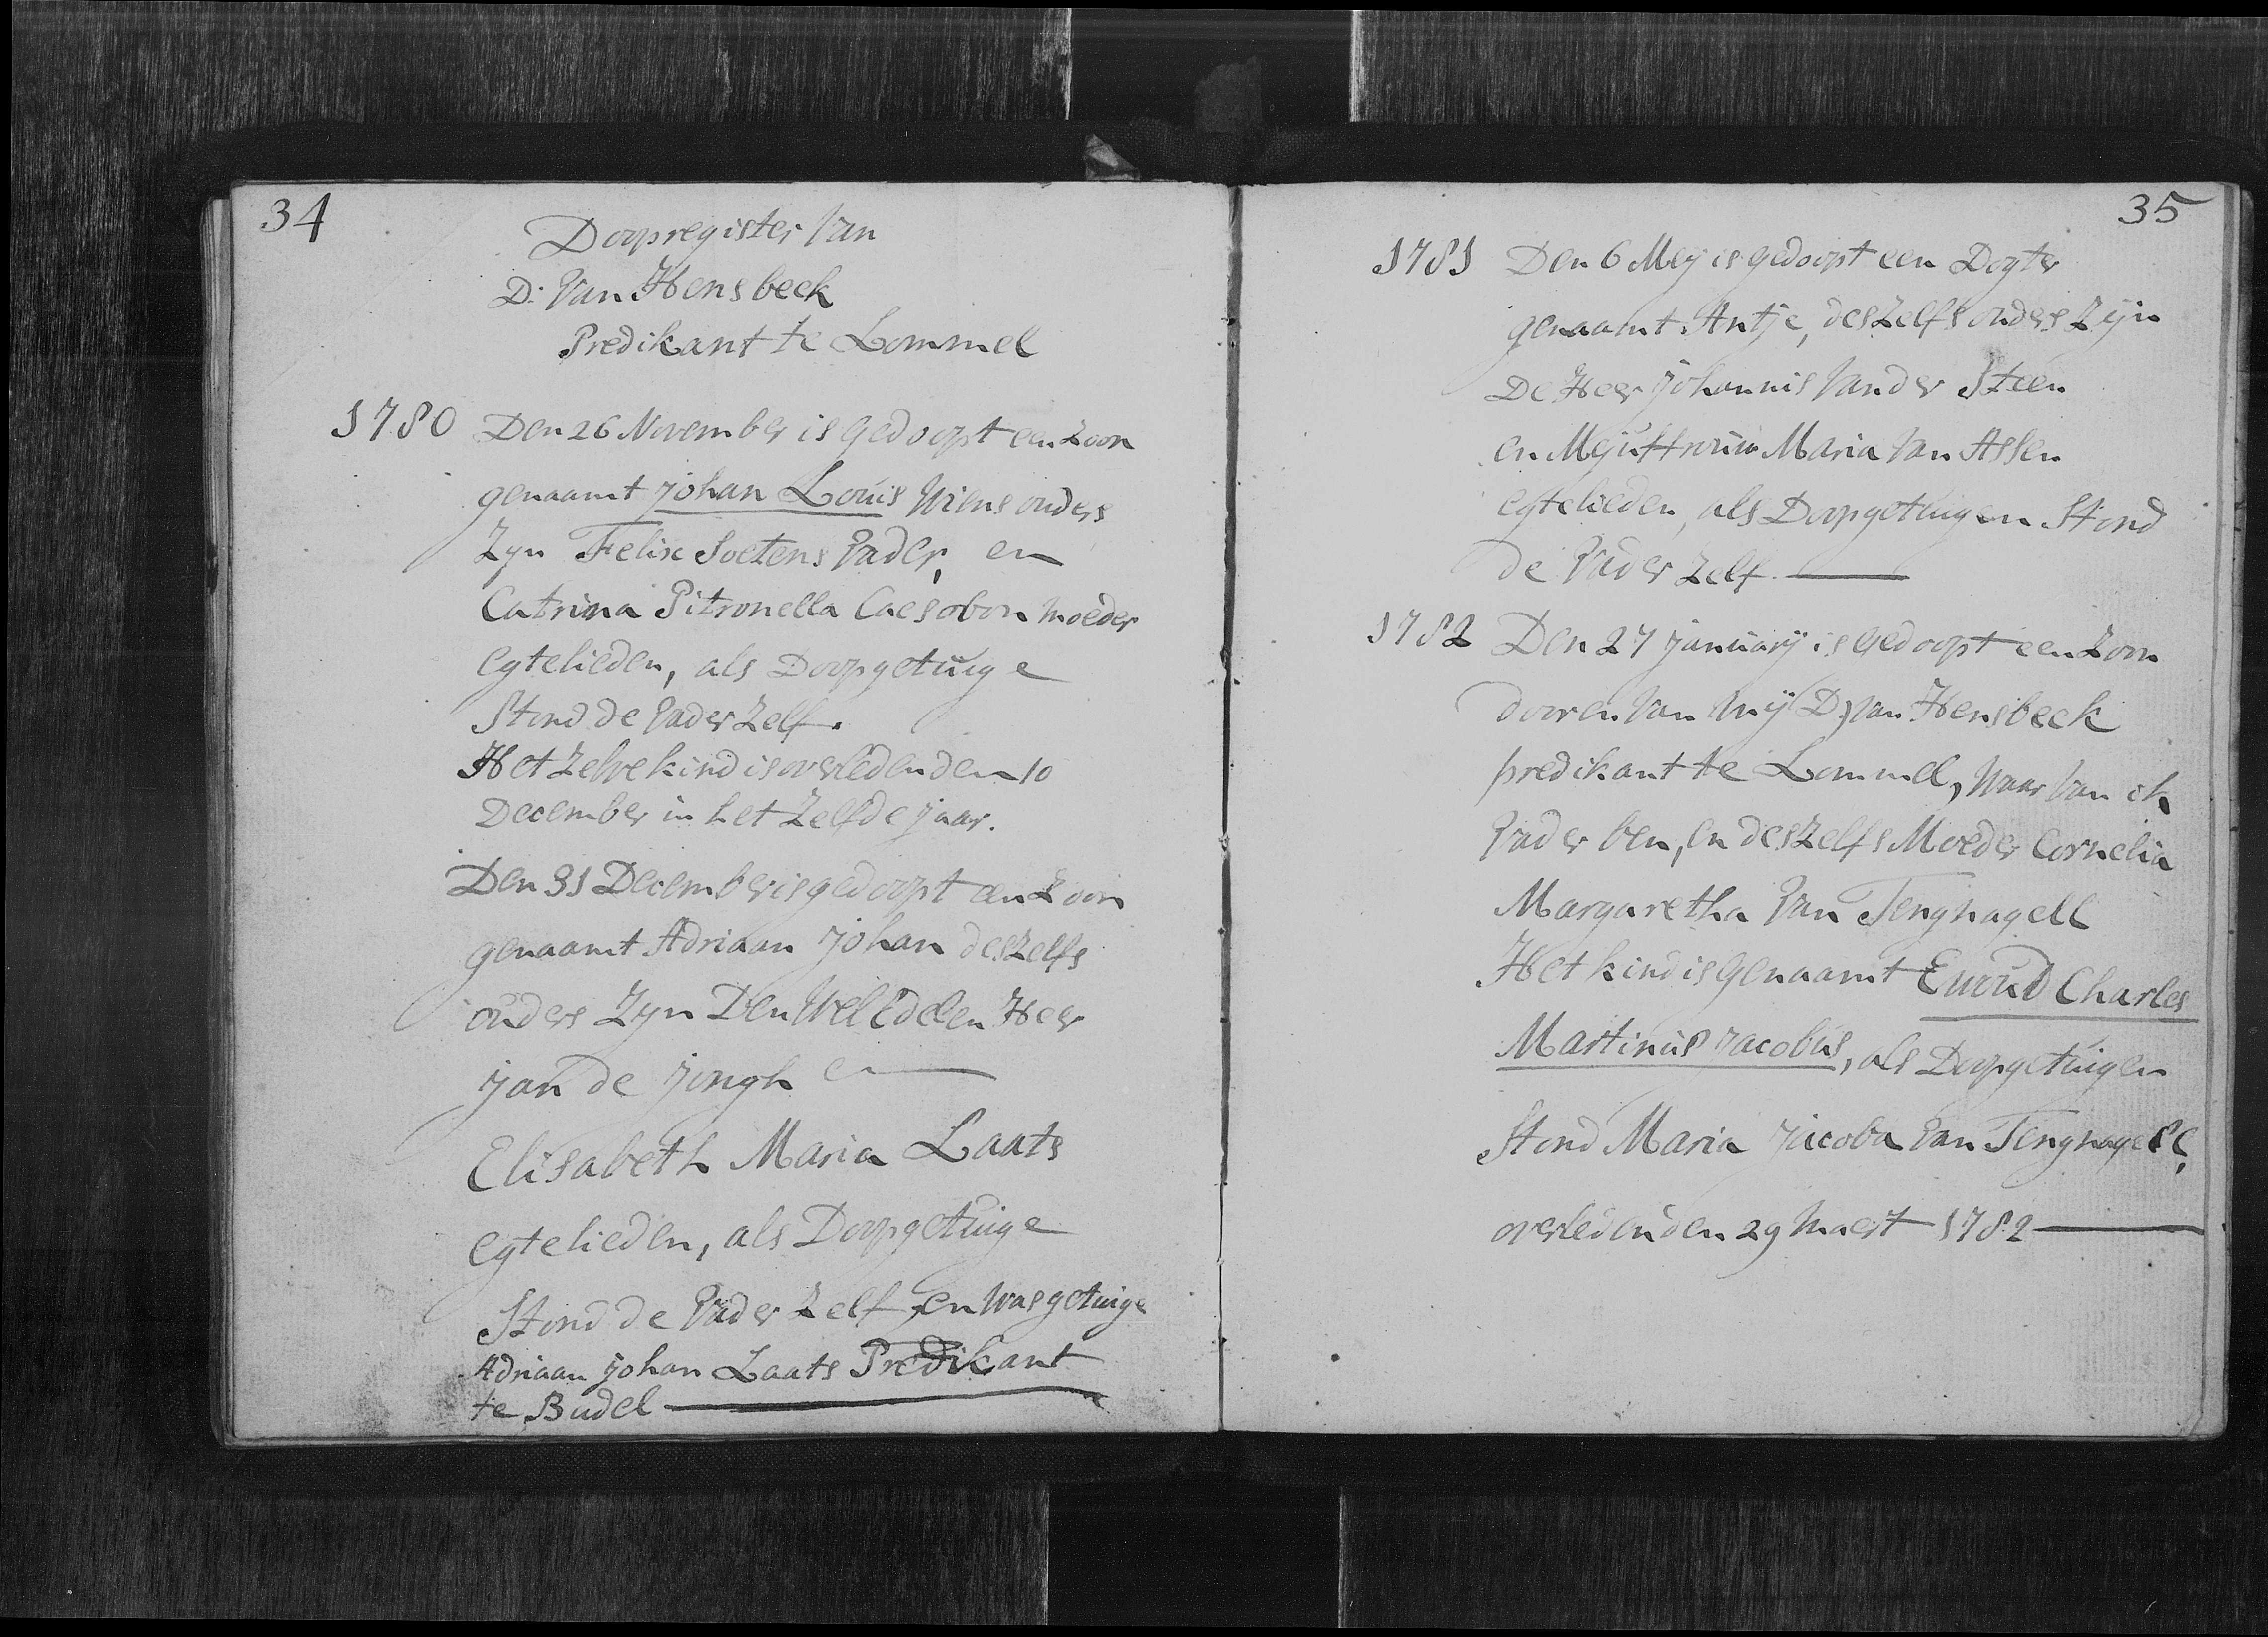 34
Doopregister Van
D: Van Hensbeek
Predikant te Lommel
1780 Den 26 November is gedoopt een zoon
genaamt Johan Louis Wiens ouders
Zyn Felix Soetens Vader, en
Catrina Pitronella Caesobon moeder
egtelieden, als Doopgetuige
Stond de Vader Zelf.
Het Zelve kind is overleden den 10
December in het Zelfde jaar.
Den 31 December is gedoopt een Zoon
genaamt Adriaan Johan deszelfs
ouders Zyn Den WelEdelen Heer
Jan de Jongh en
Elisabeth Maria Laats
egtelieden, als Doopgetuige
Stond de Vader Zelf, en was getuige
Adriaan Johan Laats Predikant
te Budel
35
1781 Den 6 Mey is gedoopt een Dogter
genaamt Antje, deszelfs ouders Zyn
De Heer Johannis Vander Steen
en Mejuffrouw Maria Van Assen
egtelieden, als Doopgetuigen Stond
de Vader Zelf.
1782 Den 27 January is gedoopt een Zoon
door en Van my D: Van Hensbeek
predikant te Lommel, Waar Van ik
Vader ben, en deszelfs Moeder Cornelia
Margaretha Van Tengnagell
Het kind is genaamt Ewoud Charles
Martinus Jacobus, als Doopgetuigen
Stond Maria Jacoba Van Tengnagell,
overleden den 29 Maert 1782